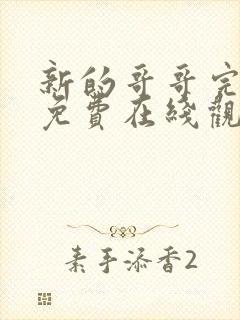 新的哥哥完
免費在綫觀
素手添香2